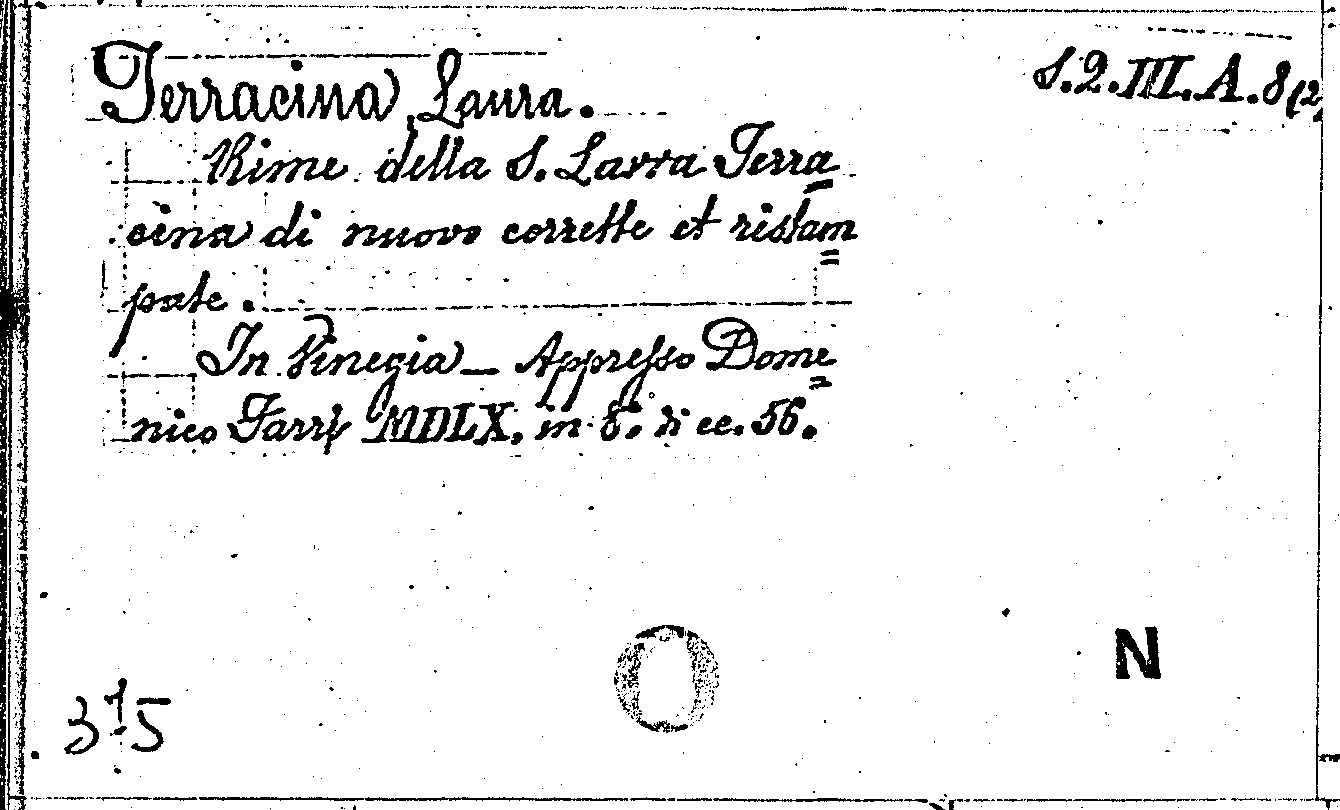 Terracina, Laura.
S.2.III.A.8(2)
Rime della S. Lavra Terra=
cina di nuovo corrette et ristam=
pate.
In Vinegia — Appresso Dome=
nico Farri MDLX. in 8.° di cc. 56.
N
315